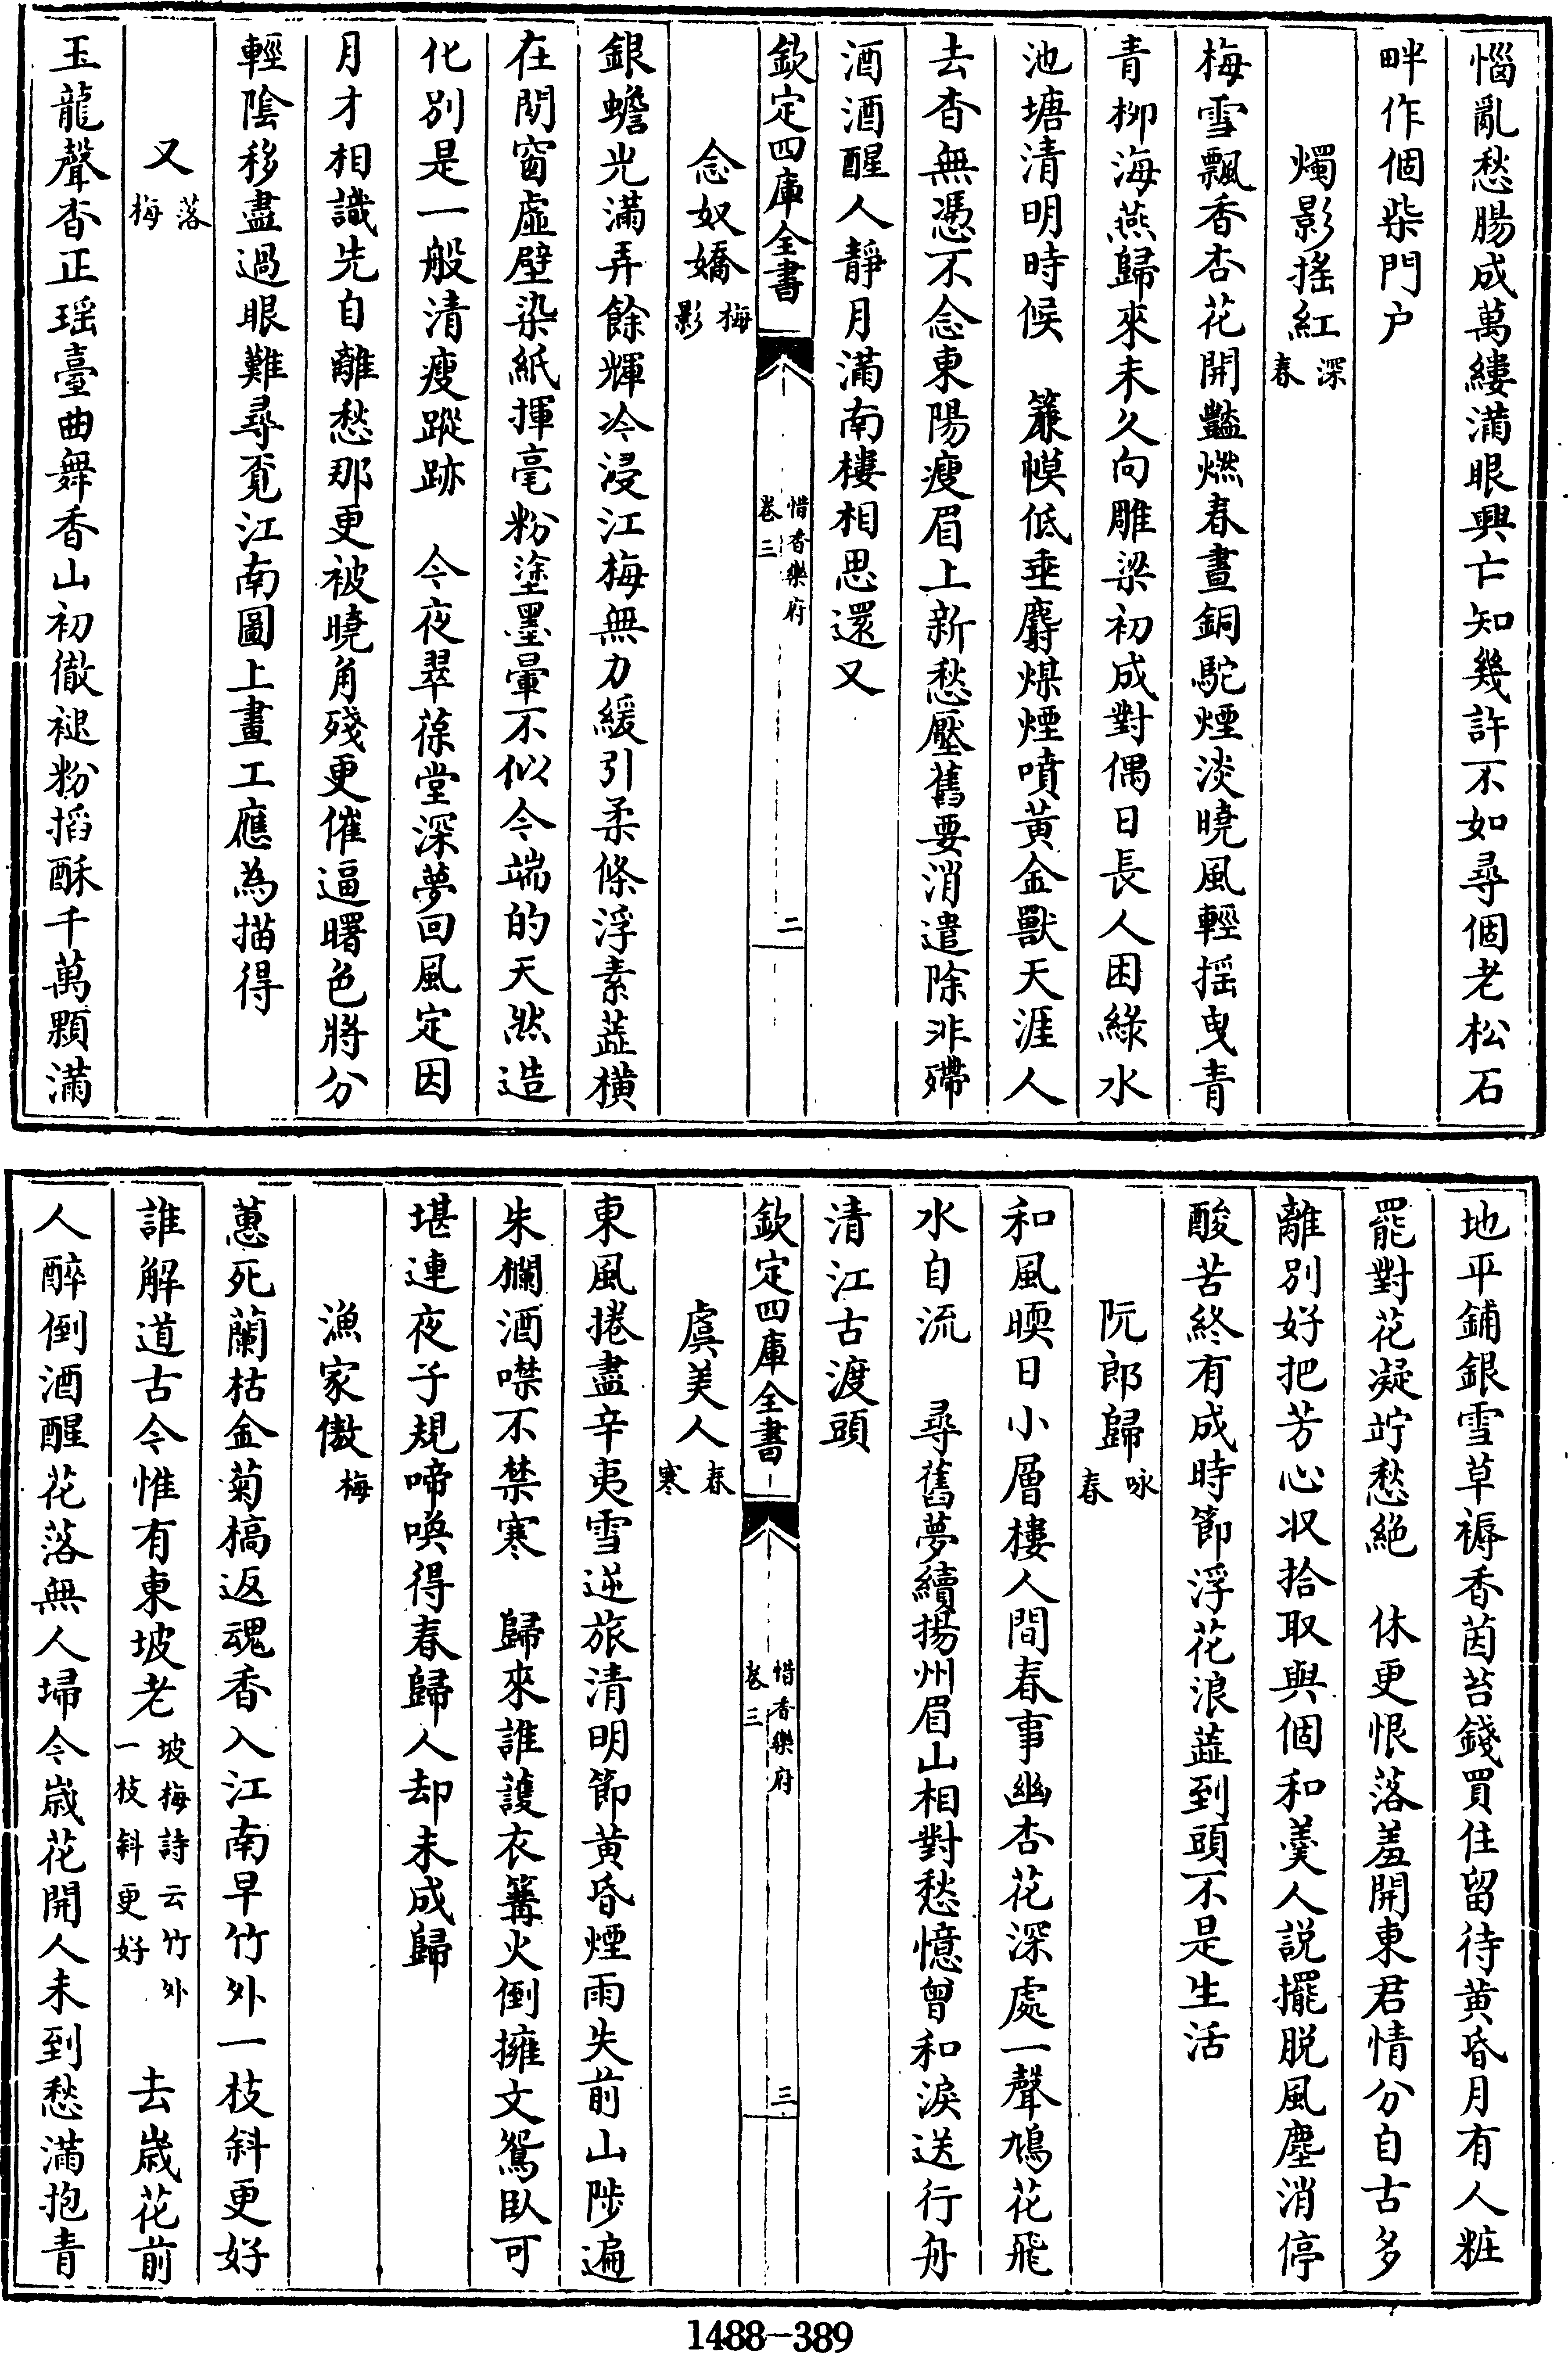 惱亂愁腸成萬縷滿眼興亡知幾許不如尋個老松石
畔作個柴門户
燭影揺紅深春
梅雪飄香杏花開豔燃春晝銅駝煙淡曉風輕揺曳青
青柳海燕歸來未久向雕梁初成對偶日長人困綠水
池塘清明時候　簾幙低垂麝煤煙噴黄金獸天涯人
去杳無憑不念東陽瘦眉上新愁壓舊要消遣除非殢
酒酒醒人靜月滿南樓相思還又
欽定四庫全書　惜香樂府卷三　二
念奴嬌梅影
銀蟾光滿弄餘輝冷浸江梅無力緩引柔條浮素蘂橫
在閒窗虛壁染紙揮毫粉塗墨暈不似今端的天然造
化別是一般清瘦蹤跡　今夜翠葆堂深夢回風定因
月才相識先自離愁那更被曉角殘更催逼曙色將分
輕陰移盡過眼難尋覓江南圖上畫工應為描得
又落梅
玉龍聲杳正瑶臺曲舞香山初徹褪粉搯酥千萬顆滿
地平鋪銀雪草褥香茵苔錢買住留待黄昏月有人粧
罷對花凝竚愁絶　休更恨落羞開東君情分自古多
離別好把芳心收拾取與個和羮人説擺脱風塵消停
酸苦終有成時節浮花浪蘂到頭不是生活
阮郎歸咏春
和風暝日小層樓人間春事幽杏花深處一聲鳩花飛
水自流　尋舊夢續揚州眉山相對愁憶曾和淚送行舟
清江古渡頭
欽定四庫全書　惜香樂府卷三　三
虞美人春寒
東風捲盡辛夷雪逆旅清明節黄昏煙雨失前山陟遍
朱欄酒噤不禁寒　歸來誰護衣篝火倒擁文鴛臥可
堪連夜子規啼喚得春歸人却未成歸
漁家傲梅
蕙死蘭枯金菊槁返魂香入江南早竹外一枝斜更好
誰解道古今惟有東坡老坡梅詩云竹外一枝斜更好　去歲花前
人醉倒酒醒花落無人埽今歲花開人未到愁滿抱青
1488—389